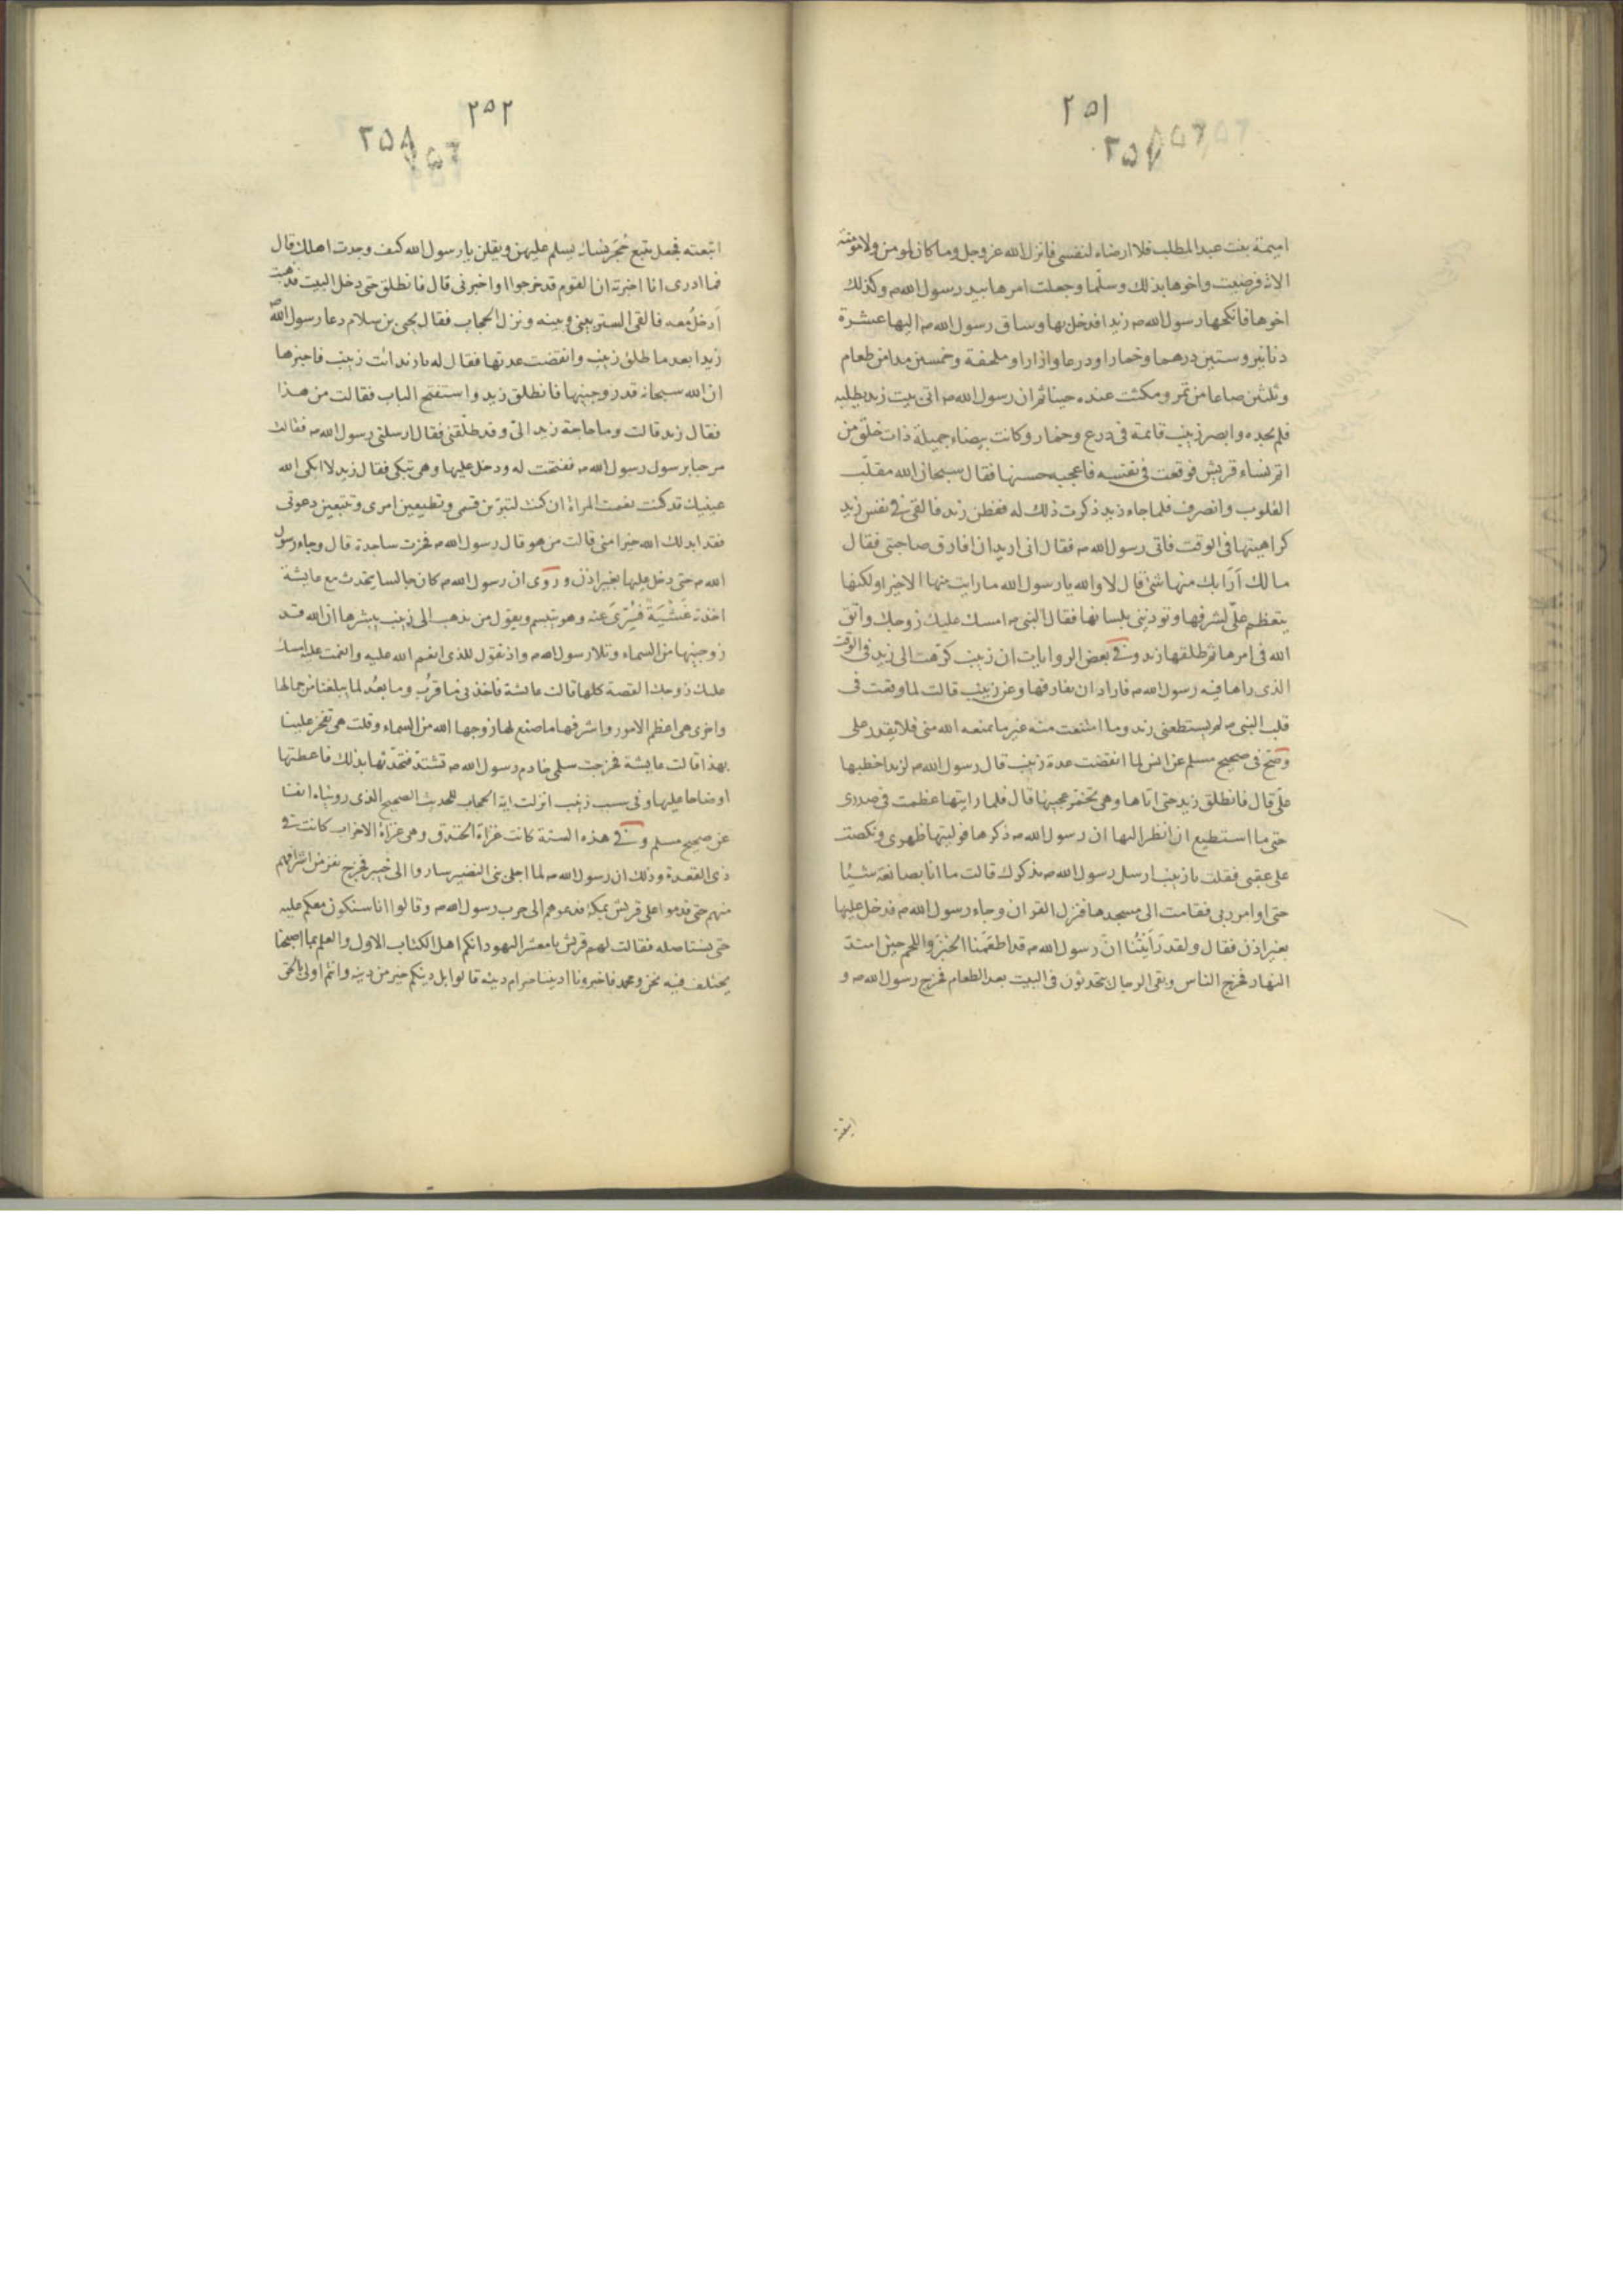 ٢٥١
٢٥٧
اميمة بنت عبد المطلب فلا ارضاه لنفسى فانزل الله عز وجل وما كان لمومن ولا مومنة
الاية فرضيت واخوها بذلك وسلما وجعلت امرها بيد رسول الله ص وكذلك
اخوها فانكحها رسول الله ص زيدا فدخل بها وساق رسول الله ص اليها عشرة
دنانير وستين درهما وخمارا ودرعا وازارا وملحفة وخمسين مدا من طعام
وثلثين صاعا من تمر ومكثت عنده حينا ثم ان رسول الله ص اتى بيت زيد يطلبه
فلم يجده وابصر زينب قائمة فى درع وخمار وكانت بيضاء جميلة ذات خلق من
اتم نساء قريش فوقعت فى نفسه فاعجبه حسنها فقال سبحان الله مقلب
القلوب وانصرف فلما جاء زيد ذكرت ذلك له ففطن زيد فالقى فى نفس زيد
كراهيتها فى الوقت فاتى رسول الله ص فقال انى اريد ان افارق صاحبتى فقال
مالك اَرَابك منها شئ قال لا والله يا رسول الله ما رايت منها الا خيرا ولكنها
يتعظم علىّ لشرفها وتوذينى بلسانها فقال النبى ص امسك عليك زوجك واتق
الله فى امرها ثم طلقها زيد وفى بعض الروايات ان زينب كرهت الى زيد فى الوقت
الذى راها فيه رسول الله ص فاراد ان يفارقها وعن زينب قالت لما وقعت فى
قلب النبى ص لم يستطعنى زيد وما امتنعت منه غير ما يمنعه الله منى فلا يقدر على
وصح فى صحيح مسلم عن انس لما انقضت عدة زينب قال رسول الله ص لزيد اخطبها
علىّ قال فانطلق زيد حتى اتاها وهى تخمر عجينها قال فلما رايتها عظمت فى صدرى
حتى ما استطيع ان انظر اليها ان رسول الله ص ذكرها فوليتها ظهرى ونكصت
على عقبى فقلت يا زينب ارسل رسول الله ص يذكرك قالت ما انا بصانعة شيئا
حتى اوامر ربى فقامت الى مسجدها فنزل القران وجاء رسول الله ص فدخل عليها
بغير اذن فقال ولقد رَاَيْتُنا انّ رسول الله ص قد اطعَمنا الخبز واللحم حين امتدّ
النهار فخرج الناس وبقى الرجال يتحدثون فى البيت بعد الطعام فخرج رسول الله ص و
٢٥٢
٢٥٨
اتبعته فجعل يتبع حُجَر نسائه يسلم عليهن ويقلن يا رسول الله كيف وجدت اهلك قال
فما ادرى انا اخبرته ان القوم قد خرجوا او اخبرنى قال فانطلق حتى دخل البيت فذهبت
اَدخلُ معه فالقى الستر بينى وبينه ونزل الحجاب فقال يحيى بن سلام دعا رسول الله ص
زيدا بعد ما طلق زينب وانقضت عدتها فقال له يا زيد ائت زينب فاخبرها
ان الله سبحانه قد زوجنيها فانطلق زيد واستفتح الباب فقالت من هذا
فقال زيد قالت وما حاجة زيد الىّ وقد طلّقنى فقال ارسلنى رسول الله ص فقالت
مرحبا برسول رسول الله ص ففتحت له ودخل عليها وهى تبكى فقال زيد لا ابكى الله
عينيك قد كنت نعمت المراة ان كنت لتبرين قسمى وتطيعين امرى وتتبعين دعوتى
فقد ابدلك الله خيرا منى قالت من هو قال رسول الله ص فخرت ساجدة قال وجاء رسول
الله ص حتى دخل عليها بغير اذن وروى ان رسول الله ص كان جالسا يتحدث مع عايشة
اخذته غَشْيَة فسُرّىَ عنه وهو يتبسم ويقول من يذهب الى زينب يبشرها ان الله قد
زوجنيها من السماء وتلا رسول الله ص واذ تقول للذى انعم الله عليه وانعمت عليه امسك
عليك زوجك القصة كلها قالت عائشة فاخذنى ما قرُب وما بعُد لما يبلغنا من جمالها
واخرى هى اعظم الامور واشرفها ما صنع لها زوجها الله من السماء وقلت هى تفخر علينا
بهذا قالت عايشة فخرجت سلمى خادم رسول الله ص تشتد فتحدّثها بذلك فاعطتها
اوضاحا عليها وفى سبب زينب انزلت اية الحجاب للحديث الصحيح الذى رويناه انفا
عن صحيح مسلم وفى هذه السنة كانت غزاة الخندق وهى غزاة الاحزاب كانت فى
ذى القعدة وذلك ان رسول الله ص لما اجلى بنى النضير ساروا الى خيبر فخرج نفر من اشرافهم
منهم حتى قدموا على قريش بمكة فدعوهم الى حرب رسول الله ص وقالوا انا سنكون معكم عليه
حتى يستاصله فقالت لهم قريش يا معشر اليهود انكم اهل الكتاب الاول والعلم بما اصبحنا
يختلف فيه نحن ومحمد فاخبرونا ادیننا خير ام دينه قالوا بل دينكم خير من دينه وانتم اولى بالحق